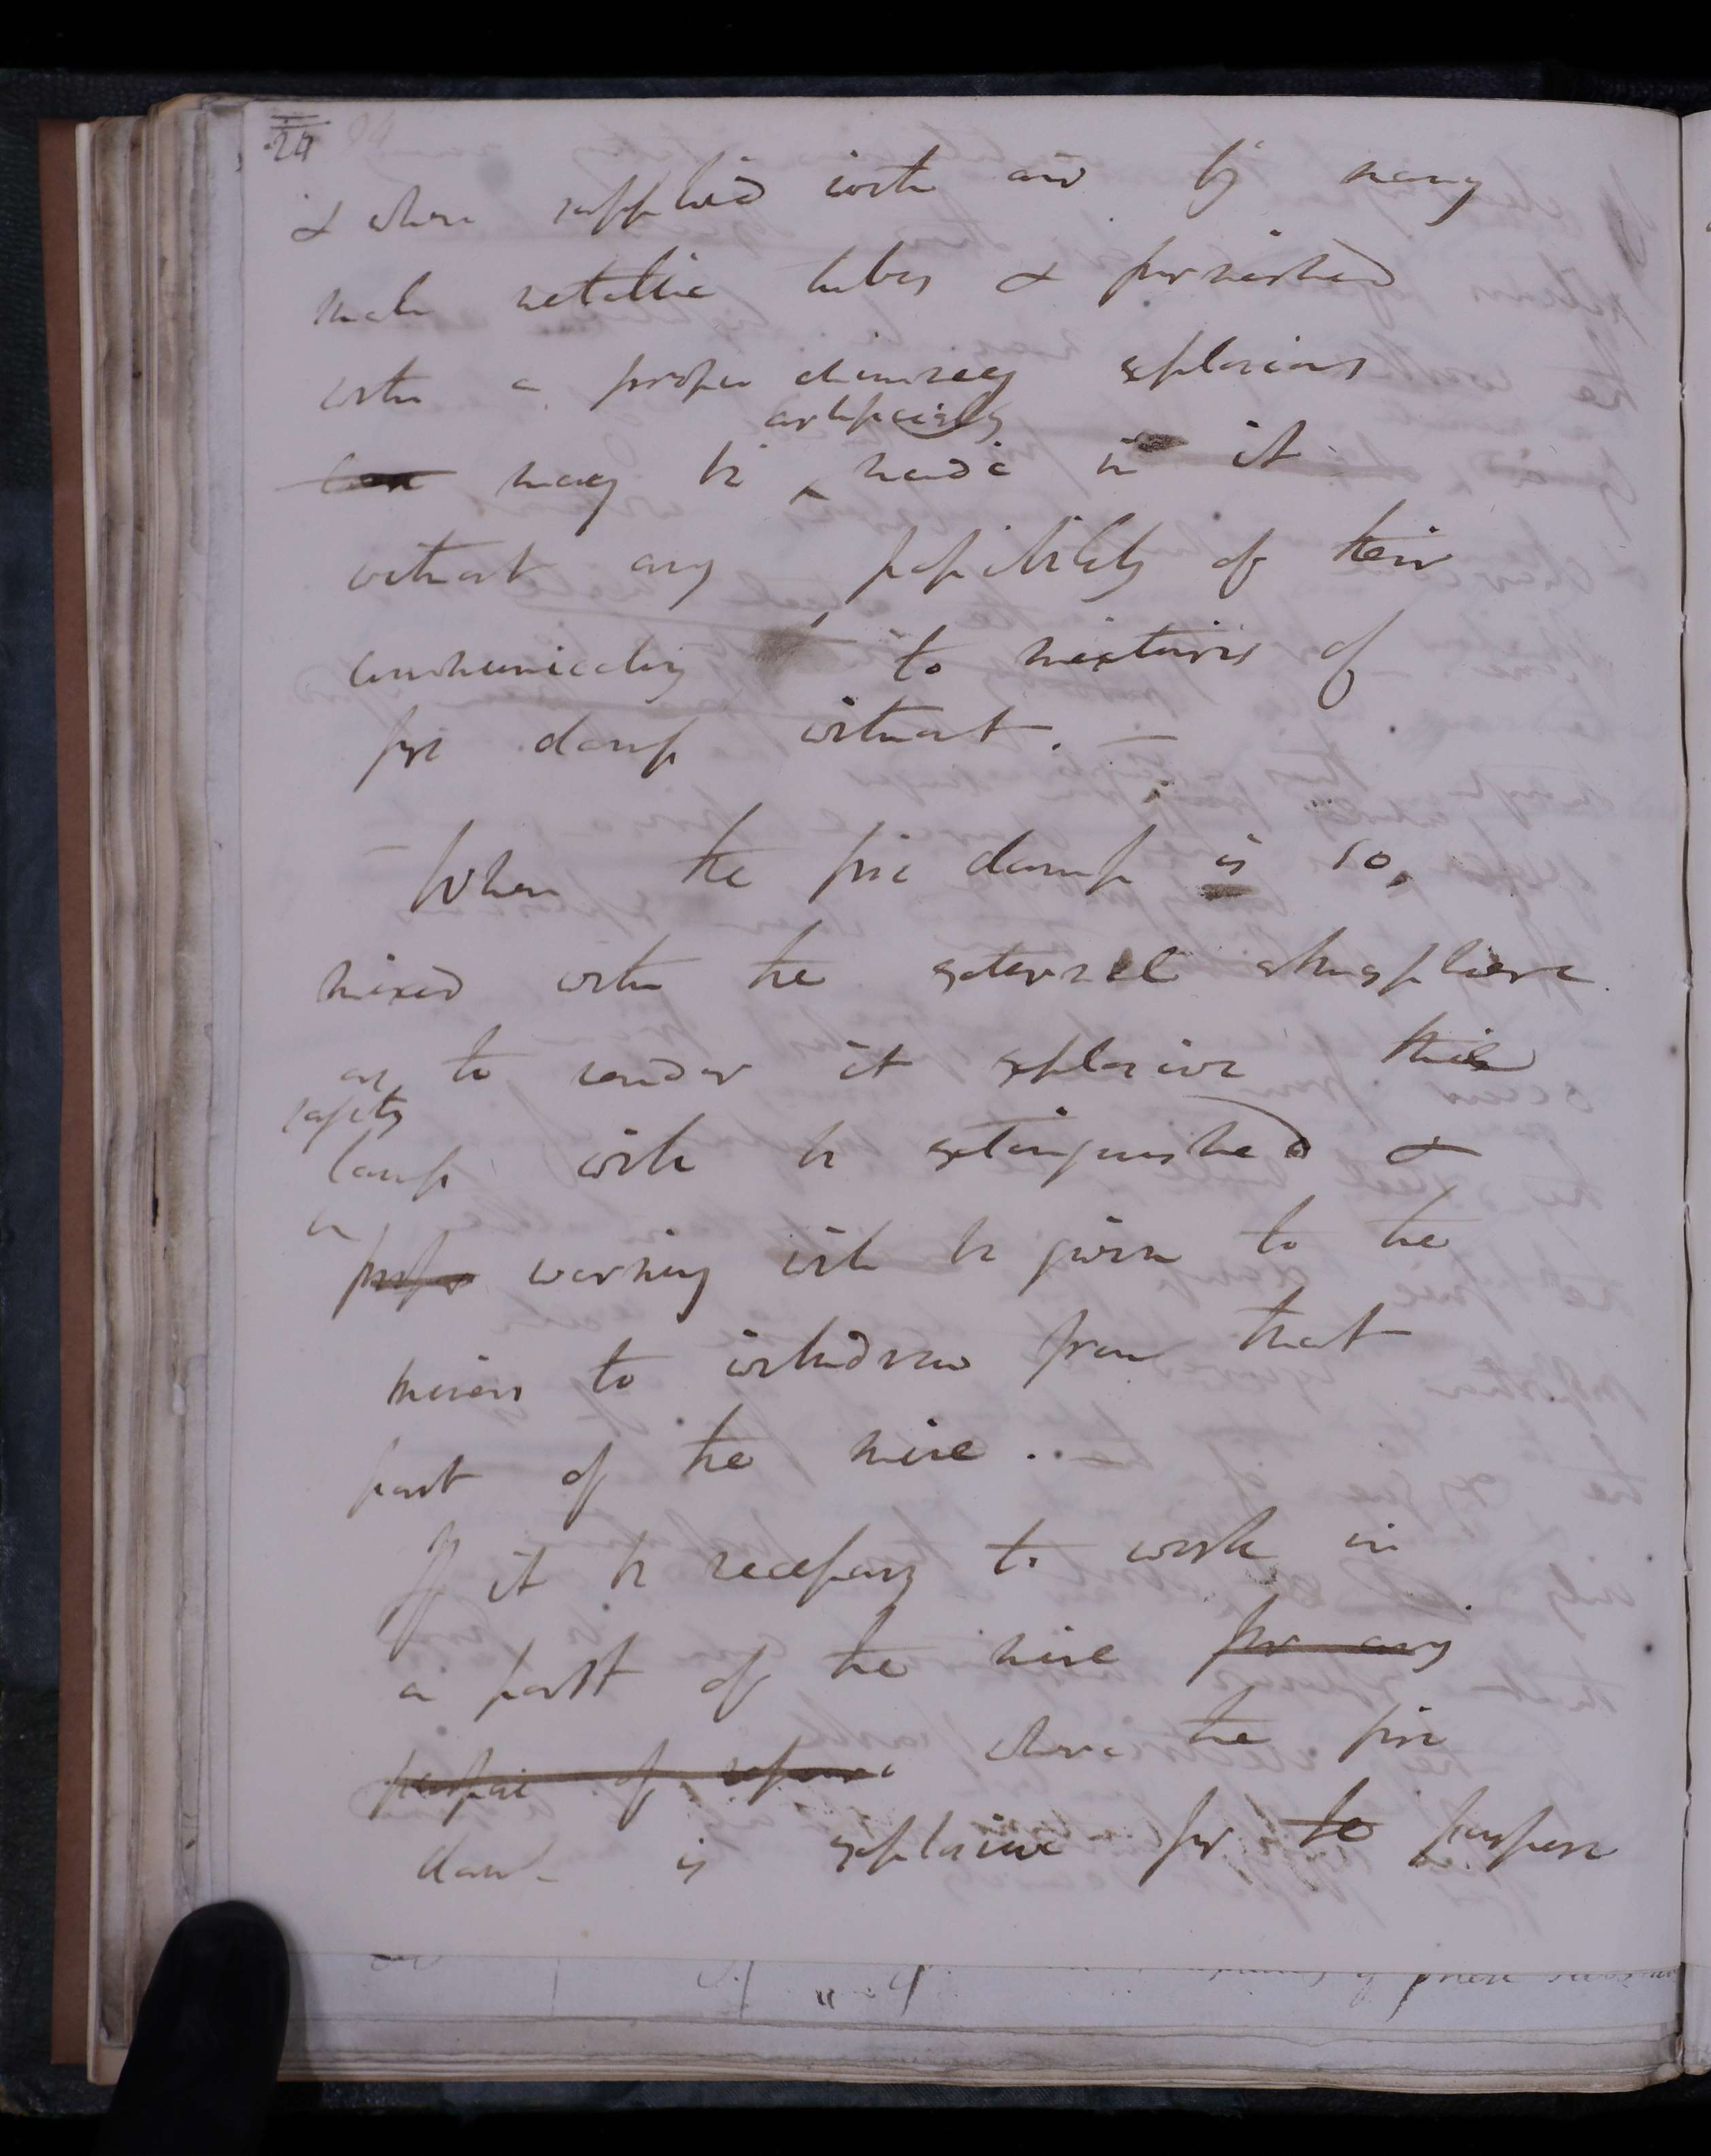 24
& when supplied with air by many
small metallic tubes & furnished
with a proper chimney explosions
may be artificially made in it
without any possibility of their
communicating to mixtures of
fire damp without. —
— When the fire damp is so,
mixed with the external atmosphere
as to render it explosive this
safety
lamp will be extinguished &
a
proper warning will be given to the
miners to withdraw from that
part of the mine . . —
If it be necessary to work in
a part of the mine for any
purpose of where the fire
damp is explosive for to purpose